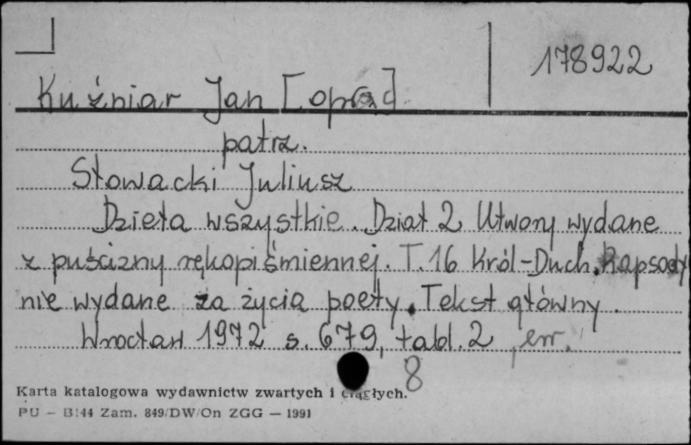 178922
Kuźniar Jan [oprac]
patrz.
Słowacki Juliusz
Dzieła wszystkie. Dział 2 Utwory wydane
z puścizny rękopiśmiennej. T. 16 Król-Duch. Rapsody
nie wydane za życia poety. Tekst główny.
Wrocław 1972 s. 679, tabl. 2, err.
8
Karta katalogowa wydawnictw zwartych i ciągłych.
PU – B:44 Zam. 849/DW/On ZGG — 1991